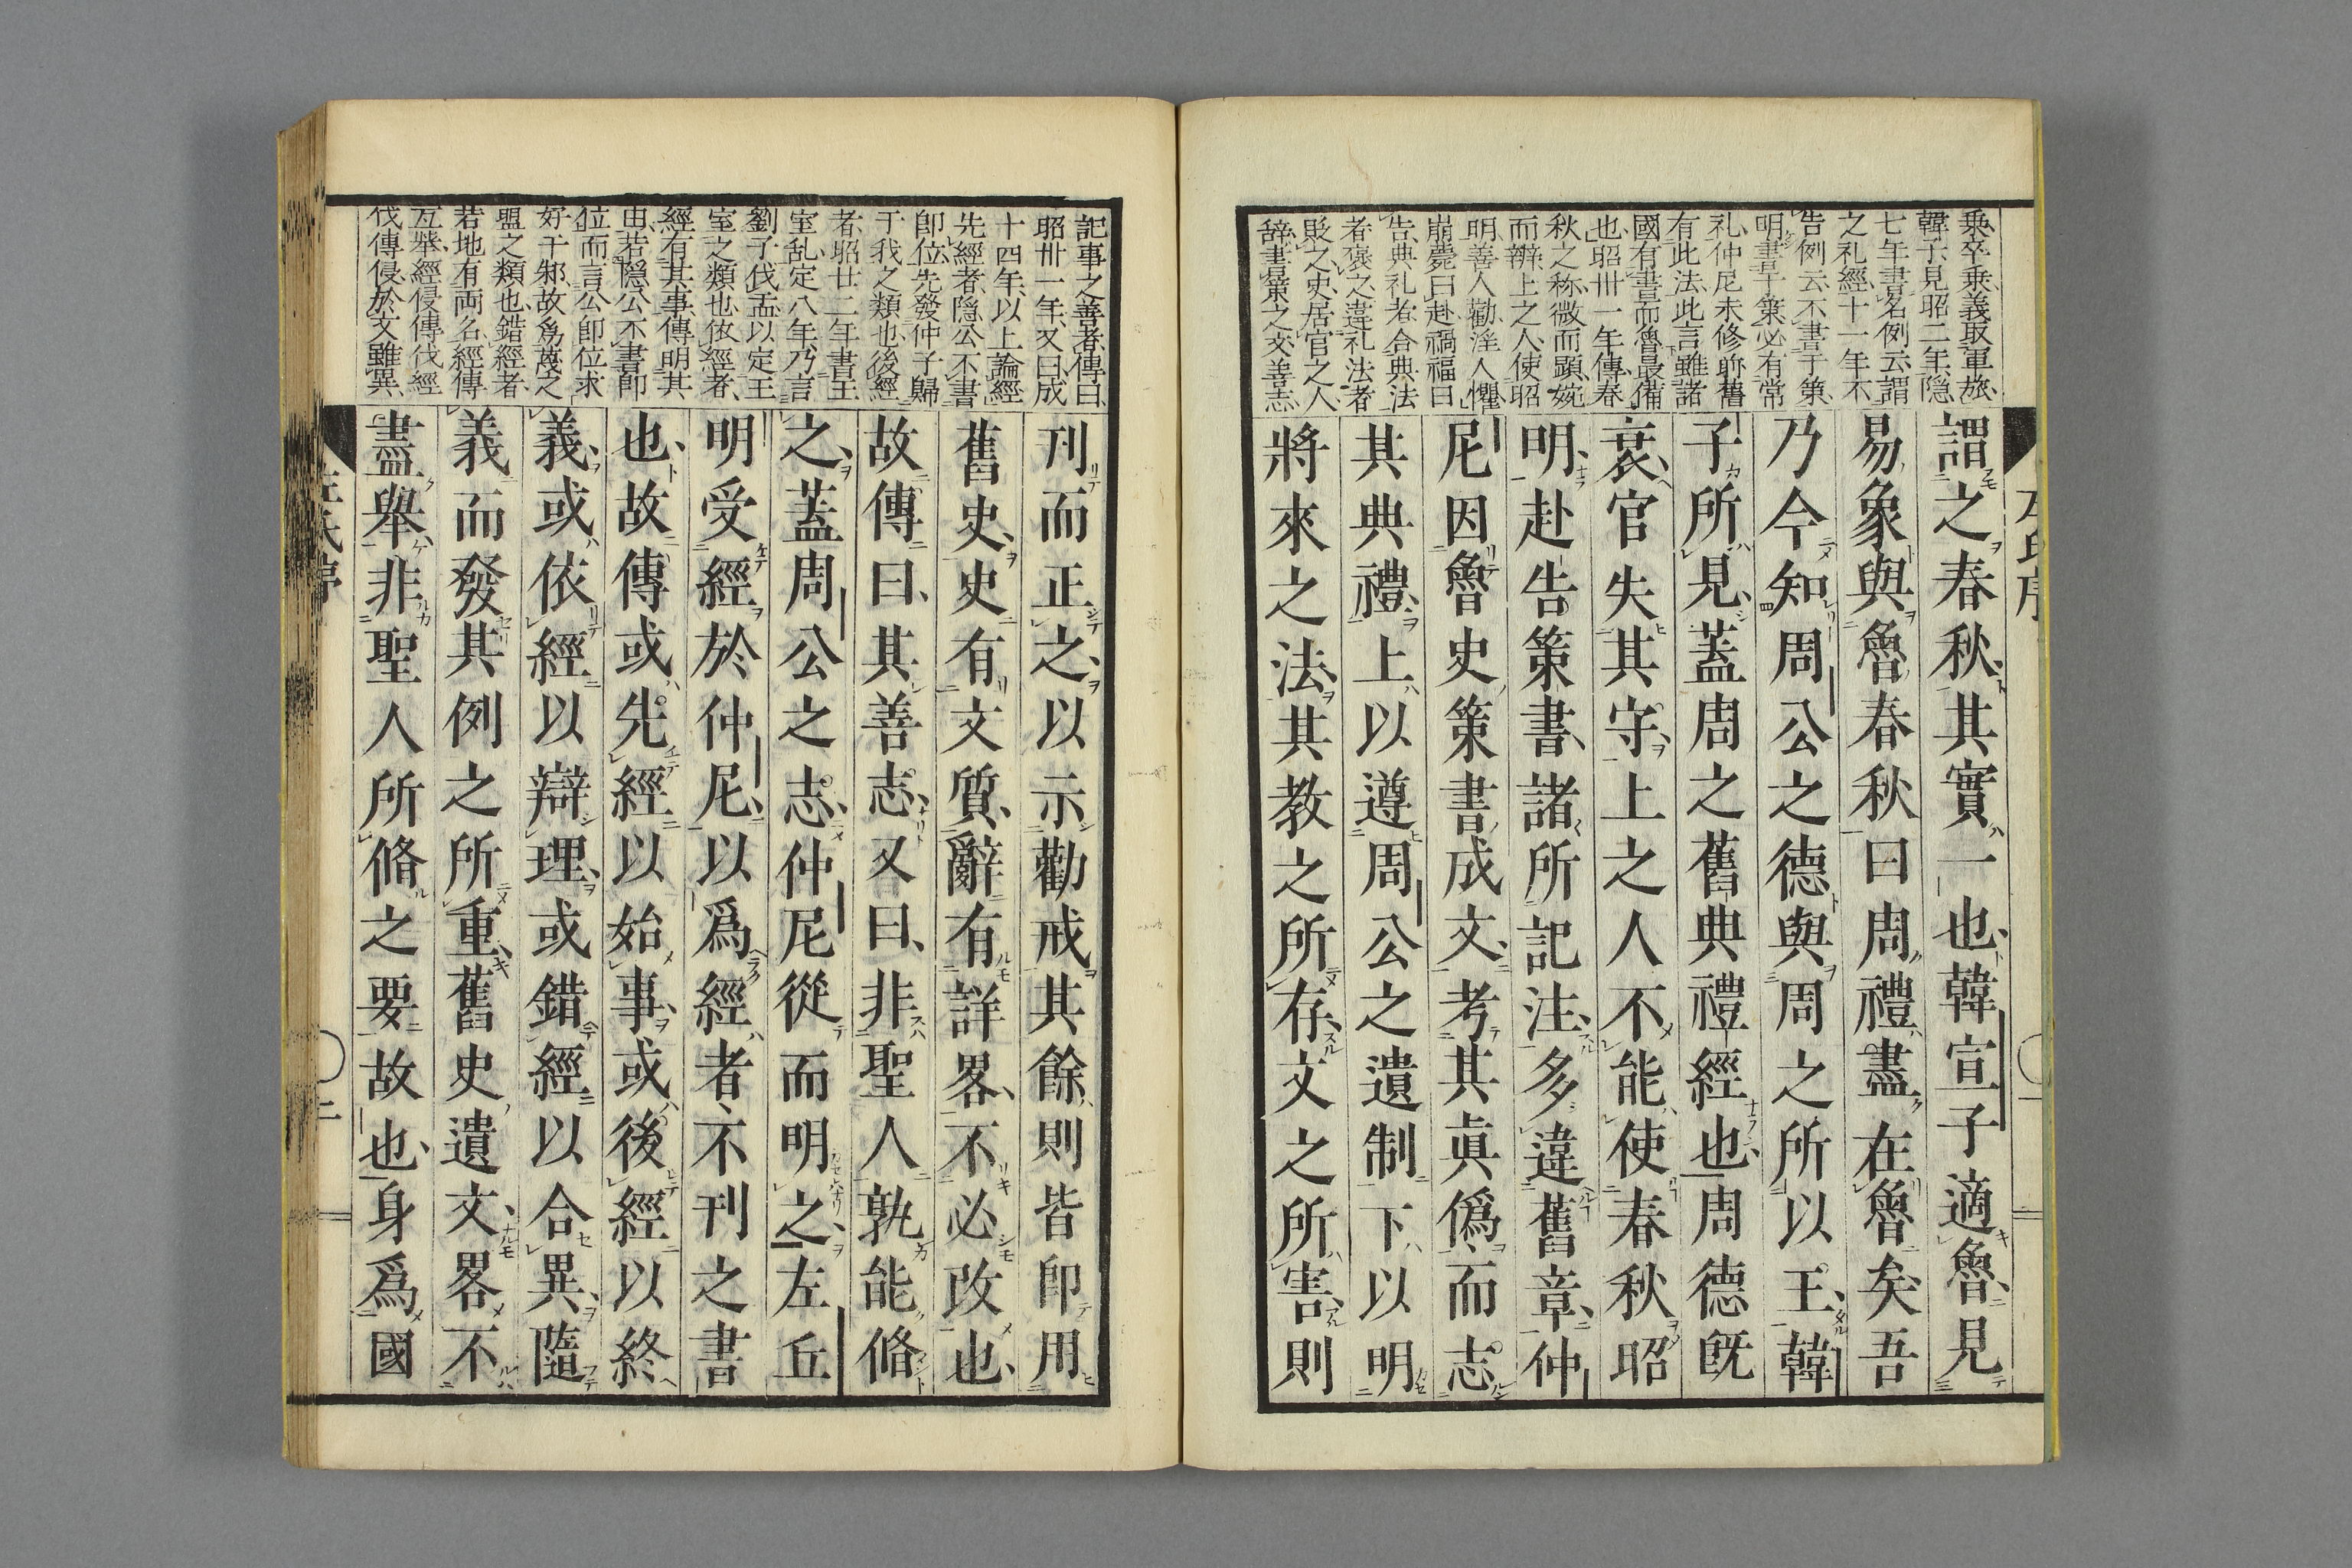 乘卒乘義取軍旅
韓子見昭二年隠
七年書名例云謂
之礼經十一年不
告例云不書于策
明書于策必有常
礼仲尼未修時舊
有此法此言雖諸
國有書而魯最備
也昭卅一年傳春
秋之称微而顕婉
而辨上之人使昭
明善人勸淫人懼
崩薨曰赴禍福曰
告典礼者合典法
者褒之違礼法者
貶之史居官之人
辞書策之文善志
謂之春秋其實一也韓宣子適魯見
易象與魯春秋曰周禮盡在魯矣吾
乃今知周公之德與周之所以王韓
子所見蓋周之舊典禮經也周德既
衰官失其守上之人不能使春秋昭
明赴告策書諸所記注多違舊章仲
尼因魯史策書成文考其眞僞而志
其典禮上以遵周公之遺制下以明
將來之法其教之所存文之所害則
記事之善者傳曰
昭卅一年又曰成
十四年以上論經
先經者隠公不書
即位先發仲子歸
于我之類也後經
者昭廿二年書王
室乱定八年乃言
劉子伐盂以定王
室之類也依經者
經有其事傳明其
由若隠公不書即
位而言公即位求
好于邾故爲蔑之
盟之類也錯經者
若地有両名經傳
互挙經侵傳伐經
伐傳侵於文雖異
刊而正之以示勸戒其餘則皆卽用
舊史史有文質辭有詳畧不必改也
故傳曰其善志又曰非聖人孰能脩
之蓋周公之志仲尼從而明之左丘
明受經於仲尼以爲經者不刊之書
也故傳或先經以始事或後經以終
義或依經以辯理或錯經以合異隨
義而發其例之所重舊史遺文畧不
盡舉非聖人所脩之要故也身爲國
左氏序
二